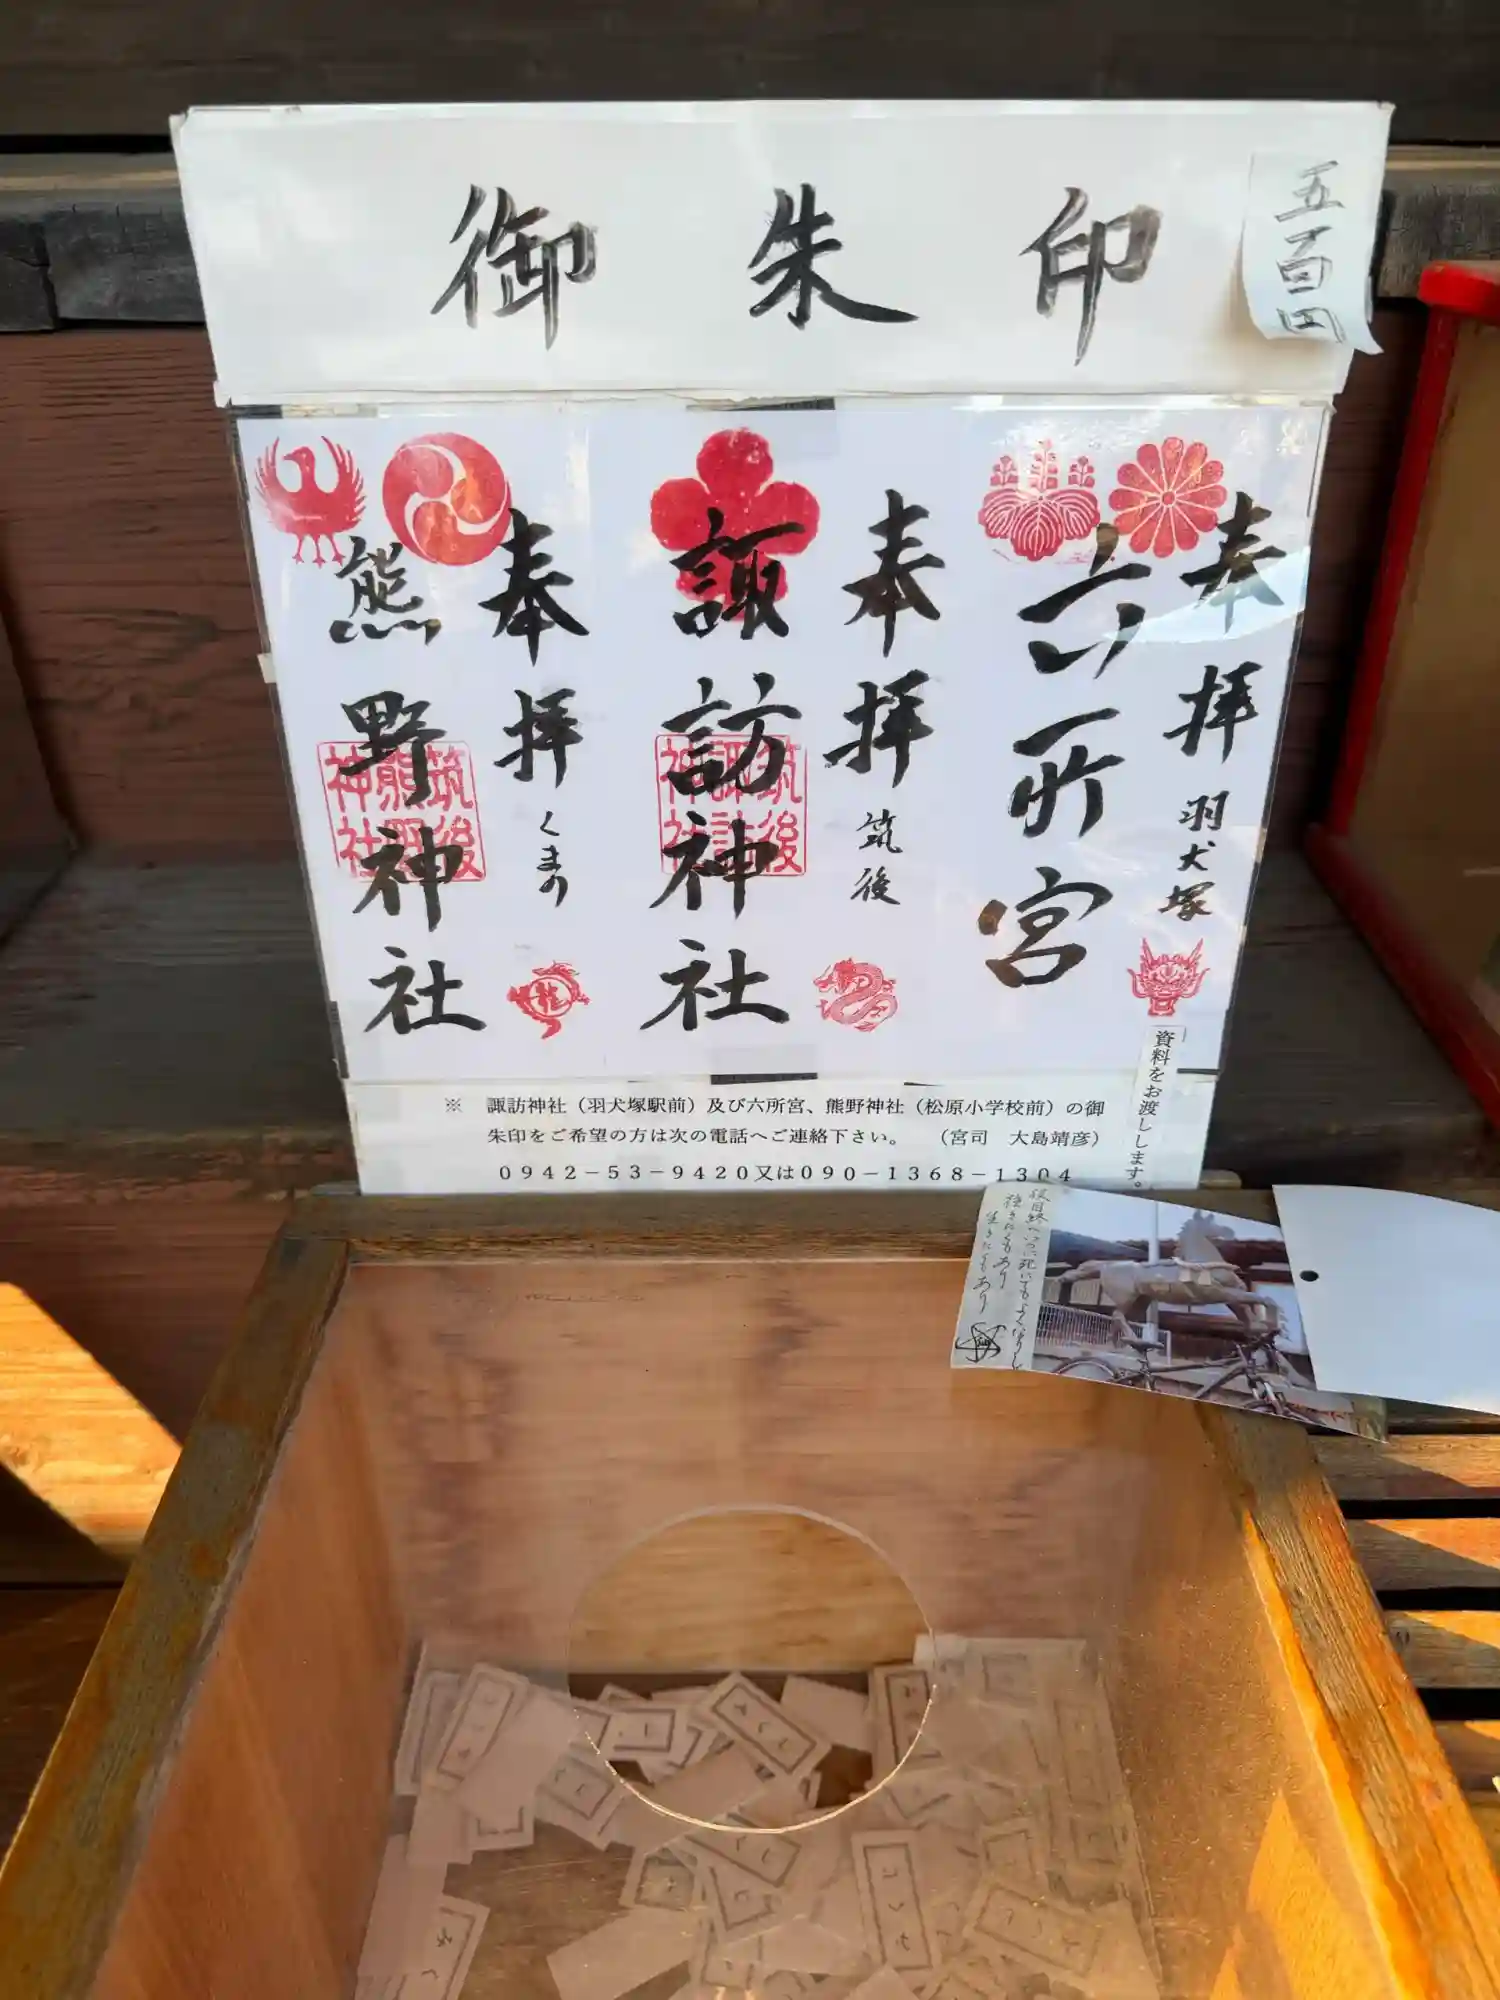 御朱印
五百円
奉拝 羽犬塚
六所宮
奉拝 筑後
諏訪神社
筑後
諏訪
神社
奉拝 くまの
熊野神社
筑後
熊野
神社
※ 諏訪神社（羽犬塚駅前）及び六所宮、熊野神社（松原小学校前）の御
朱印をご希望の方は次の電話へご連絡下さい。 （宮司 大島靖彦）
０９４２－５３－９４２０又は０９０－１３６８－１３０４
資料をお渡しします。